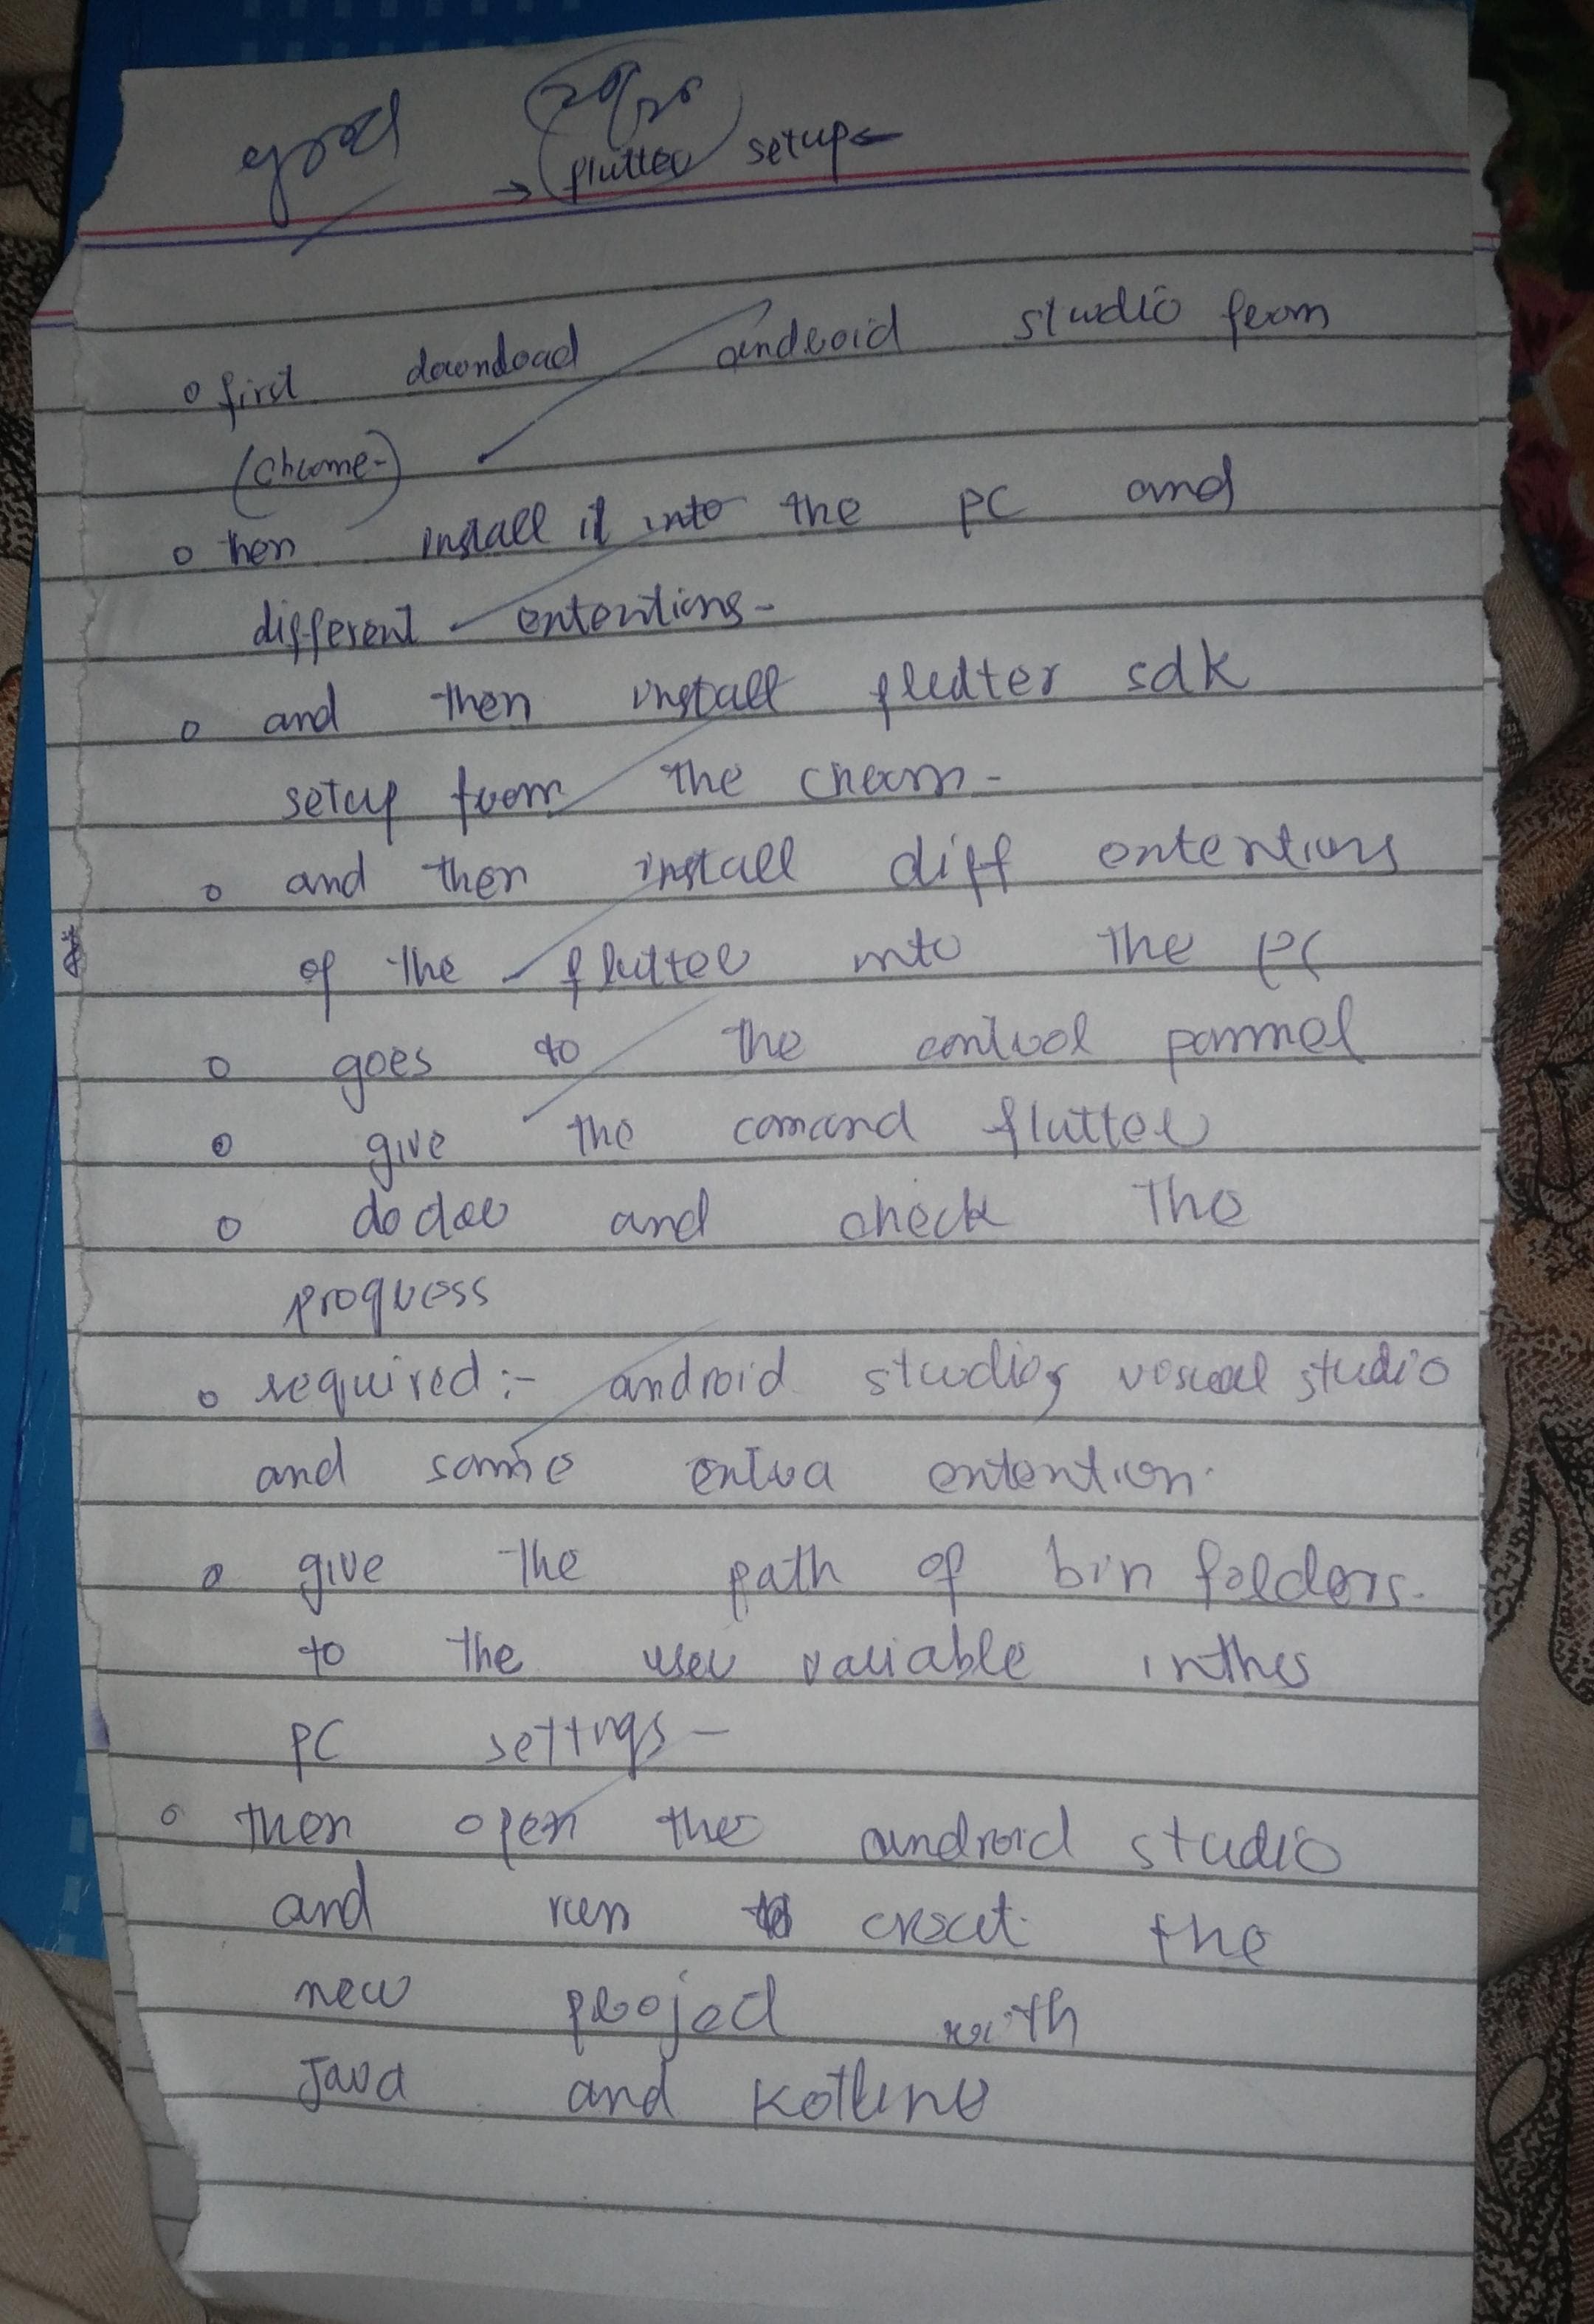 good
→ flutter setup
o first download android studio from
(chrome-)
o then install it into the PC and
different extentions-
o and then install flutter sdk
setup from the chrom-
o and then install diff extentions
of the flutter into the PC
o goes to the control pannel
o give the comand flutter
o doctor and check the
progress
o required:- android studio, visual studio
and some extra extention.
o give the path of bin folders.
to the user variable in the
PC settings-
o then open the android studio
and run creat the
new project with
Java and Kotline